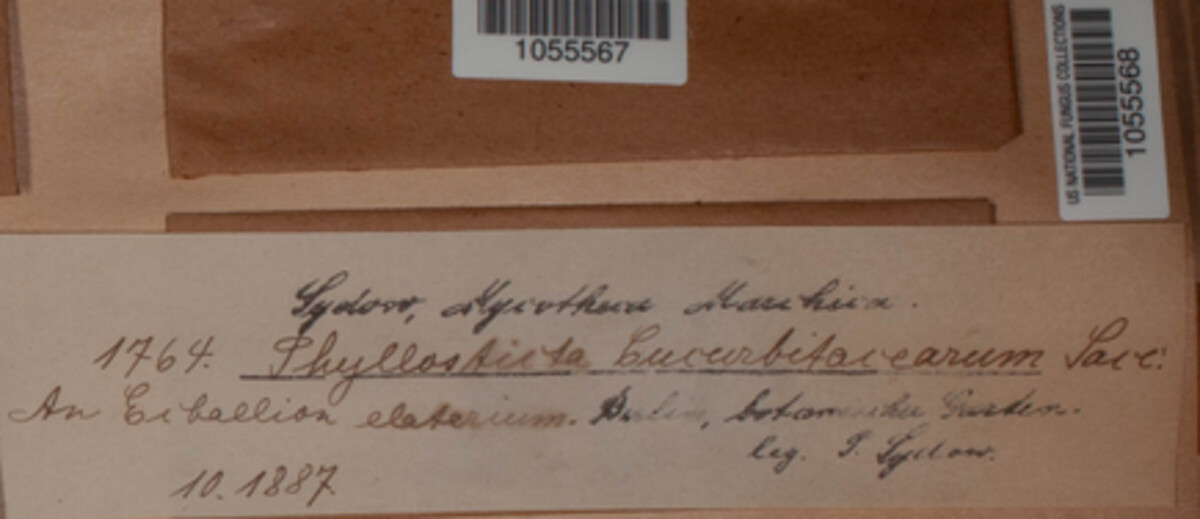 1055567
US NATIONAL FUNGUS COLLECTIONS
1055568
Sydow, Mycotheca Marchica.
1764. Phyllosticta Cucurbitacearum Sacc.
An Ecballion elaterium. Berlin, botanischer Garten.
leg. P. Sydow.
10. 1887